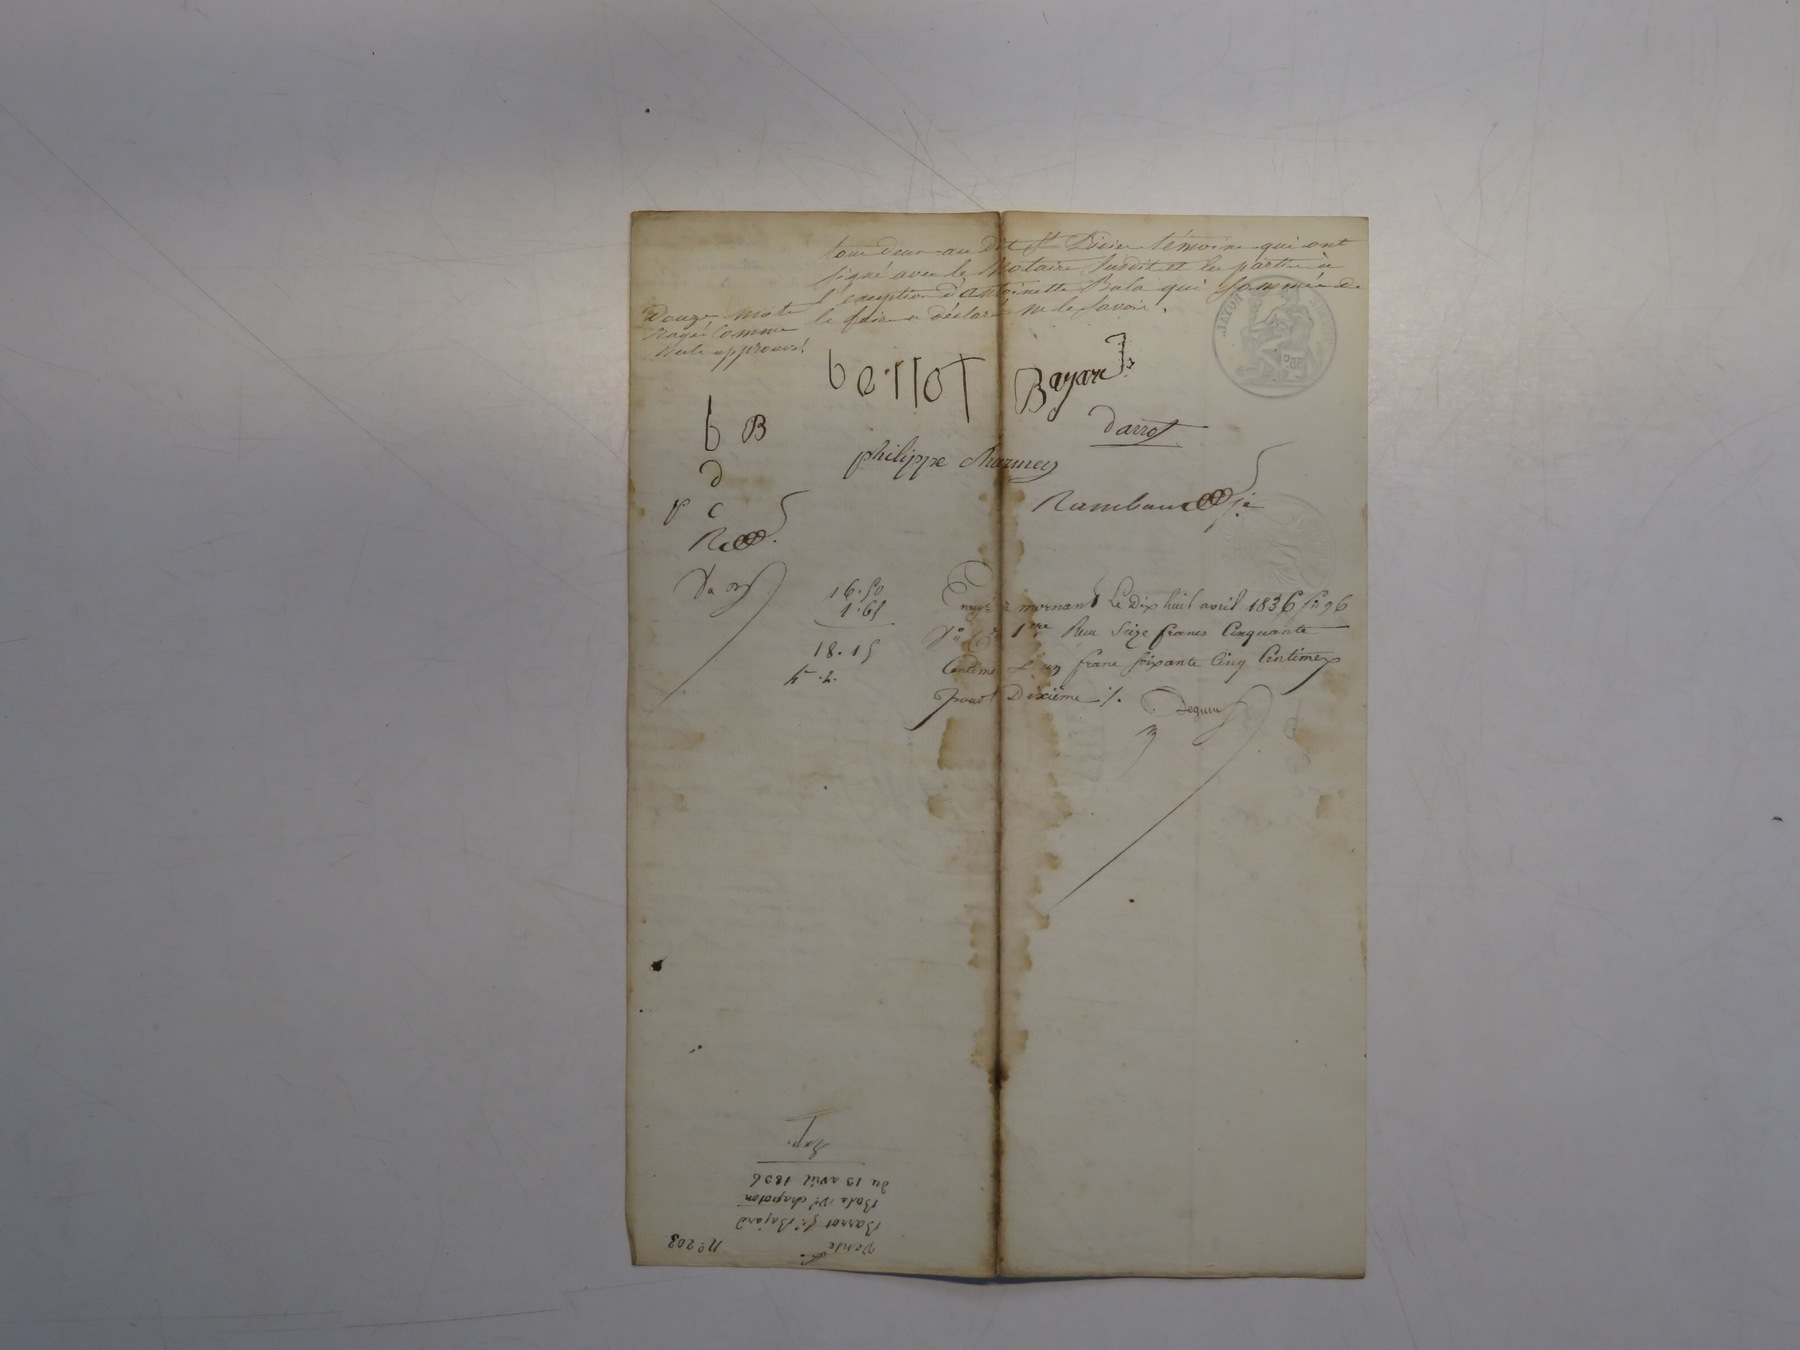 tous deux au dit St Didier témoins qui ont
signé avec le Notaire susdit et les parties à
l'exception d'antoinette Bala qui sommée de
le faire a déclaré ne le savoir.
Douze mots
Rayés Comme
nuls approuvés
barrot Bajard
b B
darrot
d
philippe charmey
p c
Rambaud
16.50
1.65
18.15
Enregé à mornant Le Dix huit avril 1836 fo 96
Vo Cse 1ere Reçu Seize francs Cinquante
Centimes et un franc soixante Cinq Centimes
pour Dixième %.
No 208
Vente
Barrot Bajard
Bala Ve chapoton
du 13 avril 1836